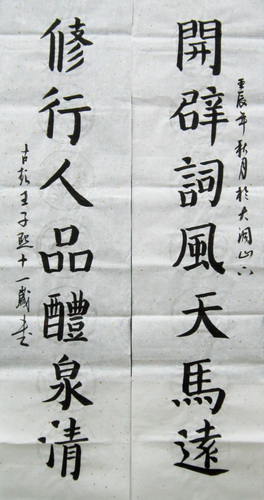 開辟詞風天馬遠
壬辰年秋月於大洞山下
修行人品醴泉清
古彭王子熙十一歲書